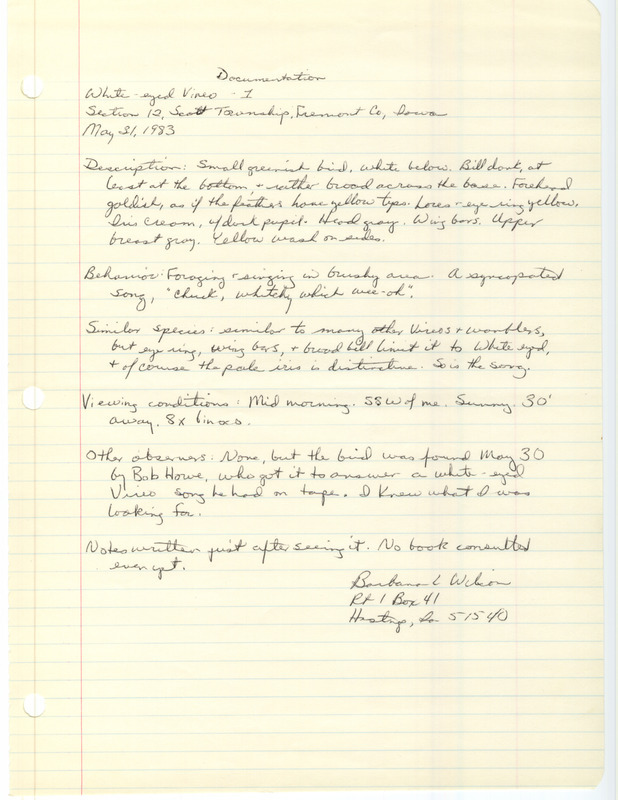 Documentation
White-eyed Vireo - 1
Section 12, Scott Township, Fremont Co, Iowa
May 31, 1983
Description: Small greenish bird, white below. Bill dark, at
least at the bottom, + rather broad across the base. Forehead
goldish, as if the feathers have yellow tips. Lores + eye ring yellow.
Iris cream, w/ dark pupil. Head gray. Wing bars. Upper
breast gray. Yellow wash on sides.
Behavior: Foraging + singing in brushy area. A syncopated
song, "chuck, whitchy which wee-oh".
Similar species: similar to many other Vireos + warblers,
but eye ring, wing bars, + broad bill limit it to White eyed,
+ of course the pale iris is distinctive. So is the song.
Viewing conditions: Mid morning. SSW of me. Sunny. 30'
away. 8x binocs.
Other observers: None, but the bird was found May 30
by Bob Howe, who got it to answer a white-eyed
Vireo song he had on tape. I knew what I was
looking for.
Notes written just after seeing it. No book consulted
even yet.
Barbara L Wilson
Rt 1 Box 41
Hastings, Ia 51540